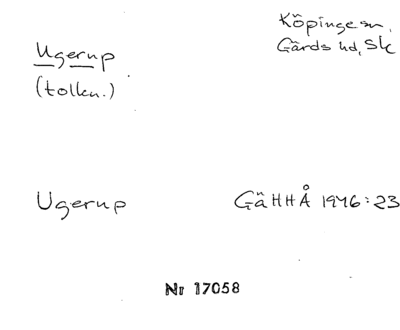 Köpinge sn,
Gärds hd, Sk
Ugerup
(tolkn.)
Ugerup
GäHHÅ 1946:23
Nr 17058